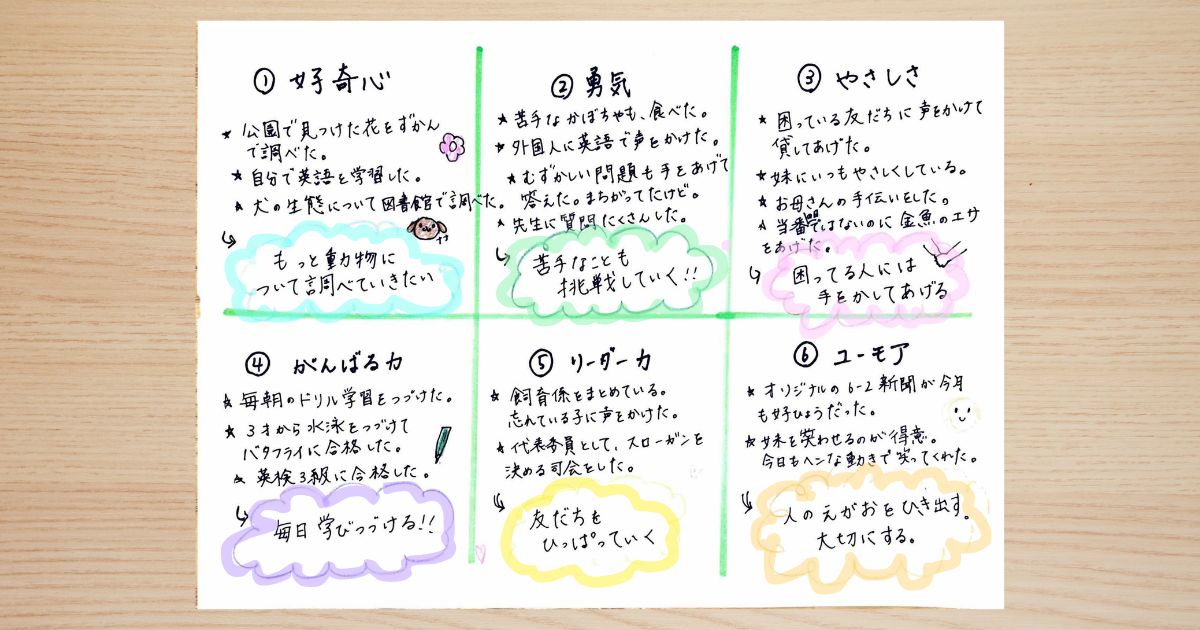 ① 好奇心
★ 公園で見つけた花をずかん
で調べた。
★ 自分で英語を学習した。
★ 犬の生態について図書館で調べた。
もっと動物に
ついて調べていきたい
② 勇気
★ 苦手なかぼちゃも、食べた。
★ 外国人に英語で声をかけた。
★ むずかしい問題も手をあげて
答えた。まちがってたけど。
★ 先生に質問たくさんした。
苦手なことも
挑戦していく!!
③ やさしさ
★ 困っている友だちに声をかけて
貸してあげた。
★ 妹にいつもやさしくしている。
★ お母さんの手伝いをした。
★ 当番ではないのに金魚のエサ
をあげた。
困ってる人には
手をかしてあげる
④ がんばる力
★ 毎朝のドリル学習をつづけた。
★ 3才から水泳をつづけて
バタフライに合格した。
★ 英検3級に合格した。
毎日学びつづける!!
⑤ リーダー力
★ 飼育係をまとめている。
忘れている子に声をかけた。
★ 代表委員として、スローガンを
決める司会をした。
友だちを
ひっぱっていく
⑥ ユーモア
★ オリジナルの6-2新聞が今月
も好ひょうだった。
★ 妹を笑わせるのが得意。
今日もヘンな動きで笑ってくれた。
人のえがおをひき出す。
大切にする。